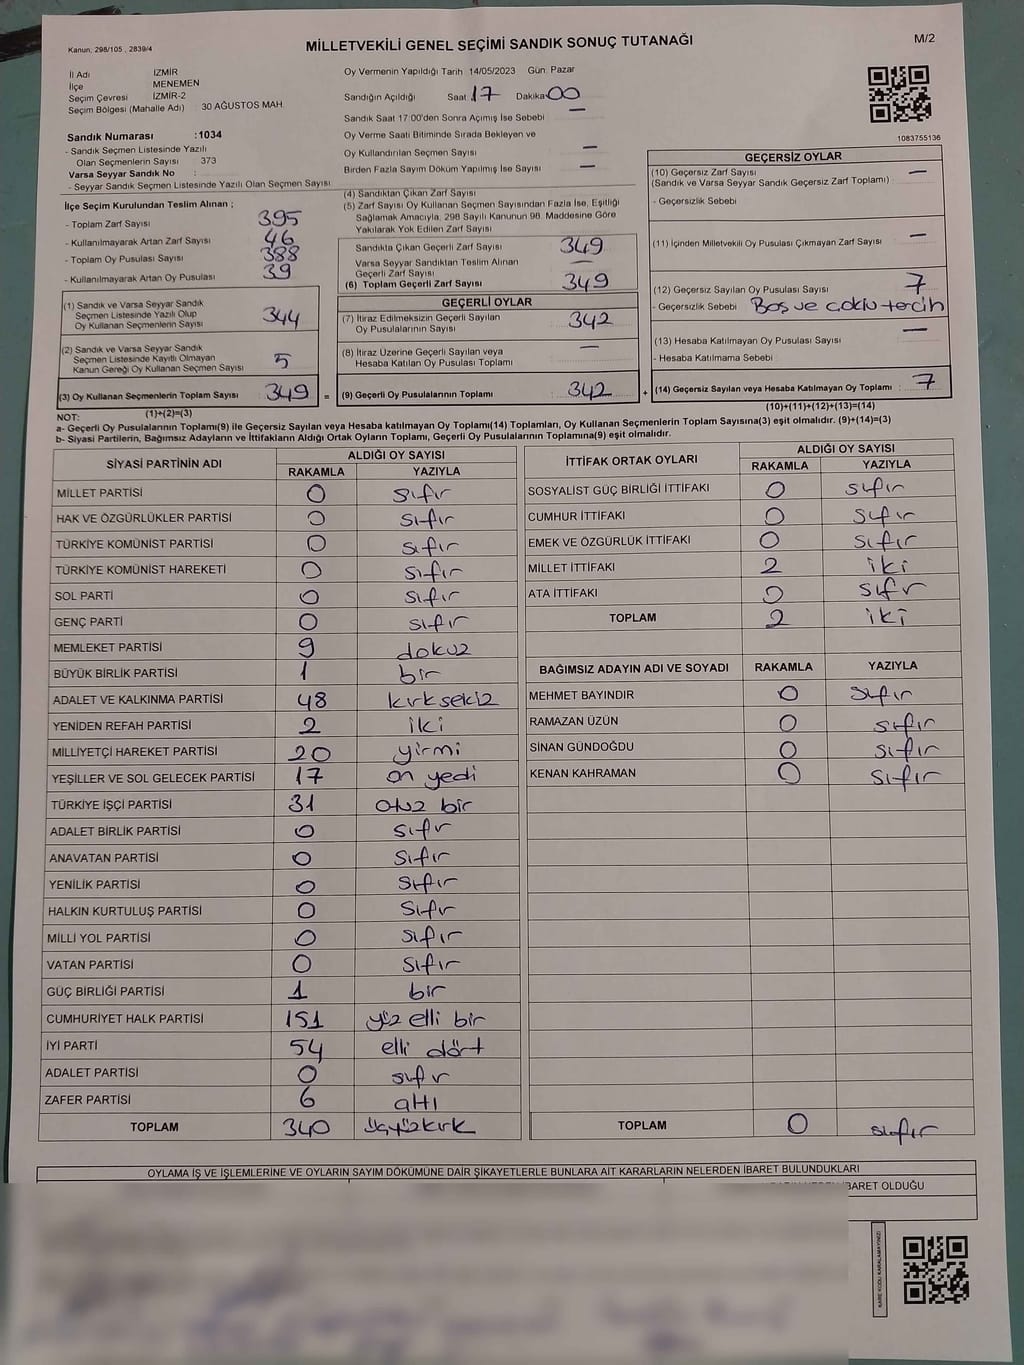 Kanun; 298/105 , 2839/4
MİLLETVEKİLİ GENEL SEÇİMİ SANDIK SONUÇ TUTANAĞI
M/2
İl Adı İZMİR
İlçe MENEMEN
Seçim Çevresi İZMİR-2
Seçim Bölgesi (Mahalle Adı) 30 AĞUSTOS MAH.
Sandık Numarası :1034
- Sandık Seçmen Listesinde Yazılı
Olan Seçmenlerin Sayısı 373
Varsa Seyyar Sandık No :
- Seyyar Sandık Seçmen Listesinde Yazılı Olan Seçmen Sayısı
Oy Vermenin Yapıldığı Tarih 14/05/2023 Gün: Pazar
Sandığın Açıldığı Saat 17 Dakika 00
Sandık Saat 17:00'den Sonra Açımış İse Sebebi —
Oy Verme Saati Bitiminde Sırada Bekleyen ve
Oy Kullandırılan Seçmen Sayısı —
Birden Fazla Sayım Döküm Yapılmış İse Sayısı —
1083755136
İlçe Seçim Kurulundan Teslim Alınan ;
- Toplam Zarf Sayısı 395
- Kullanılmayarak Artan Zarf Sayısı 46
- Toplam Oy Pusulası Sayısı 388
- Kullanılmayarak Artan Oy Pusulası 39
(1) Sandık ve Varsa Seyyar Sandık
Seçmen Listesinde Yazılı Olup
Oy Kullanan Seçmenlerin Sayısı 344
(2) Sandık ve Varsa Seyyar Sandık
Seçmen Listesinde Kayıtlı Olmayan
Kanun Gereği Oy Kullanan Seçmen Sayısı 5
(3) Oy Kullanan Seçmenlerin Toplam Sayısı 349 =
(1)+(2)=(3)
(4) Sandıktan Çıkan Zarf Sayısı
(5) Zarf Sayısı Oy Kullanan Seçmen Sayısından Fazla İse, Eşitliği
Sağlamak Amacıyla, 298 Sayılı Kanunun 98. Maddesine Göre
Yakılarak Yok Edilen Zarf Sayısı
Sandıkta Çıkan Geçerli Zarf Sayısı 349
Varsa Seyyar Sandıktan Teslim Alınan
Geçerli Zarf Sayısı —
(6) Toplam Geçerli Zarf Sayısı 349
GEÇERLİ OYLAR
(7) İtiraz Edilmeksizin Geçerli Sayılan
Oy Pusulalarının Sayısı 342
(8) İtiraz Üzerine Geçerli Sayılan veya
Hesaba Katılan Oy Pusulası Toplamı —
(9) Geçerli Oy Pusulalarının Toplamı 342 +
GEÇERSİZ OYLAR
(10) Geçersiz Zarf Sayısı —
(Sandık ve Varsa Seyyar Sandık Geçersiz Zarf Toplamı)
- Geçersizlik Sebebi
(11) İçinden Milletvekili Oy Pusulası Çıkmayan Zarf Sayısı —
(12) Geçersiz Sayılan Oy Pusulası Sayısı 7
- Geçersizlik Sebebi Boş ve çoklu tercih
(13) Hesaba Katılmayan Oy Pusulası Sayısı —
- Hesaba Katılmama Sebebi
(14) Geçersiz Sayılan veya Hesaba Katılmayan Oy Toplamı : 7
(10)+(11)+(12)+(13)=(14)
NOT:
a- Geçerli Oy Pusulalarının Toplamı(9) ile Geçersiz Sayılan veya Hesaba katılmayan Oy Toplamı(14) Toplamları, Oy Kullanan Seçmenlerin Toplam Sayısına(3) eşit olmalıdır. (9)+(14)=(3)
b- Siyasi Partilerin, Bağımsız Adayların ve İttifakların Aldığı Ortak Oyların Toplamı, Geçerli Oy Pusulalarının Toplamına(9) eşit olmalıdır.
SİYASİ PARTİNİN ADI ALDIĞI OY SAYISI
RAKAMLA YAZIYLA
MİLLET PARTİSİ 0 sıfır
HAK VE ÖZGÜRLÜKLER PARTİSİ 0 sıfır
TÜRKİYE KOMÜNİST PARTİSİ 0 sıfır
TÜRKİYE KOMÜNİST HAREKETİ 0 sıfır
SOL PARTİ 0 sıfır
GENÇ PARTİ 0 sıfır
MEMLEKET PARTİSİ 9 dokuz
BÜYÜK BİRLİK PARTİSİ 1 bir
ADALET VE KALKINMA PARTİSİ 48 kırksekiz
YENİDEN REFAH PARTİSİ 2 iki
MİLLİYETÇİ HAREKET PARTİSİ 20 yirmi
YEŞİLLER VE SOL GELECEK PARTİSİ 17 on yedi
TÜRKİYE İŞÇİ PARTİSİ 31 otuz bir
ADALET BİRLİK PARTİSİ 0 sıfır
ANAVATAN PARTİSİ 0 sıfır
YENİLİK PARTİSİ 0 sıfır
HALKIN KURTULUŞ PARTİSİ 0 sıfır
MİLLİ YOL PARTİSİ 0 sıfır
VATAN PARTİSİ 0 sıfır
GÜÇ BİRLİĞİ PARTİSİ 1 bir
CUMHURİYET HALK PARTİSİ 151 yüz elli bir
İYİ PARTİ 54 elli dört
ADALET PARTİSİ 0 sıfır
ZAFER PARTİSİ 6 altı
TOPLAM 340 üçyüzkırk
İTTİFAK ORTAK OYLARI ALDIĞI OY SAYISI
RAKAMLA YAZIYLA
SOSYALİST GÜÇ BİRLİĞİ İTTİFAKI 0 sıfır
CUMHUR İTTİFAKI 0 sıfır
EMEK VE ÖZGÜRLÜK İTTİFAKI 0 sıfır
MİLLET İTTİFAKI 2 iki
ATA İTTİFAKI 0 sıfır
TOPLAM 2 iki
BAĞIMSIZ ADAYIN ADI VE SOYADI RAKAMLA YAZIYLA
MEHMET BAYINDIR 0 sıfır
RAMAZAN ÜZÜN 0 sıfır
SİNAN GÜNDOĞDU 0 sıfır
KENAN KAHRAMAN 0 sıfır
TOPLAM 0 sıfır
OYLAMA İŞ VE İŞLEMLERİNE VE OYLARIN SAYIM DÖKÜMÜNE DAİR ŞİKAYETLERLE BUNLARA AİT KARARLARIN NELERDEN İBARET BULUNDUKLARI
İBARET OLDUĞU
KARE KODU KARALAMAYINIZ!